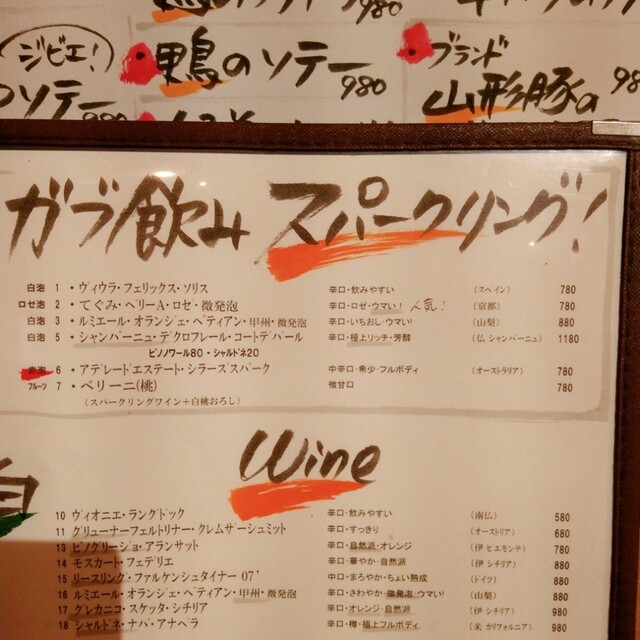 980
ジビエ!
鴨のソテー
980
のソテー
ブランド
山形豚の
ガブ飲み スパークリング!
白泡 1 ・ヴィウラ・フェリックス・ソリス 辛口・飲みやすい (スペイン) 780
ロゼ泡 2 ・てぐみ・ベリーA・ロゼ・微発泡 辛口・ロゼ・ウマい! 人気! (京都) 780
白泡 3 ・ルミエール・オランジェ・ペティアン・甲州・微発泡 辛口・いちおし・ウマい! (山梨) 880
白泡 5 ・シャンパーニュ・デクロフレール・コートデバール 辛口・極上リッチ・芳醇 (仏 シャンパーニュ) 1180
ピノノワール80・シャルドネ20
赤泡 6 ・アデレードエステート・シラーズスパーク 中辛口・希少・フルボディ (オーストラリア) 780
フルーツ 7 ・ベリーニ(桃) 微甘口 780
(スパークリングワイン+白桃おろし)
Wine
白
10 ヴィオニエ・ラングドック 辛口・飲みやすい (南仏) 580
11 グリューナーフェルトリナー・クレムザーシュミット 辛口・すっきり (オーストリア) 680
13 ピノグリージョ・アランサット 辛口・自然派・オレンジ (伊 ヒエモンテ) 780
14 モスカート・フェデリエ 辛口・華やか・自然派 (伊 シチリア) 880
15 リースリング・ファルケンシュタイナー 07' 中口・まろやか・ちょい熟成 (ドイツ) 880
16 ルミエール・オランジェ・ペティアン・甲州・微発泡 辛口・さわやか・微発泡・ウマい! (山梨) 880
17 グレカニコ・スケッタ・シチリア 辛口・オレンジ・自然派 (伊 シチリア) 980
18 シャルドネ・ナパ・アナベラ 辛口・樽・極上フルボディ (米 カリフォルニア) 980